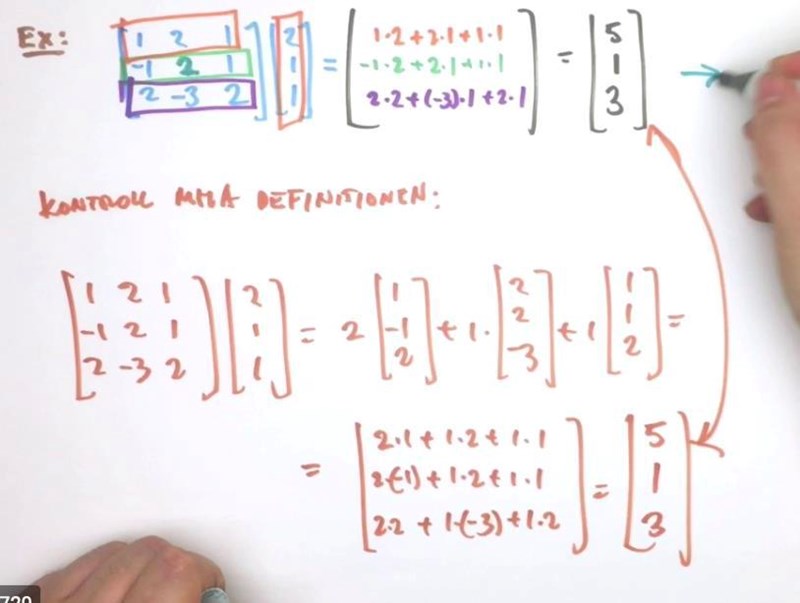 Ex: [1 2 1; -1 2 1; 2 -3 2] [2; 1; 1] = [1·2+2·1+1·1; -1·2+2·1+1·1; 2·2+(-3)·1+2·1] = [5; 1; 3] →
KONTROLL MHA DEFINITIONEN:
[1 2 1; -1 2 1; 2 -3 2] [2; 1; 1] = 2 [1; -1; 2] + 1· [2; 2; -3] + 1 [1; 1; 2] =
= [2·1 + 1·2 + 1·1; 2(-1) + 1·2 + 1·1; 2·2 + 1·(-3) + 1·2] = [5; 1; 3]